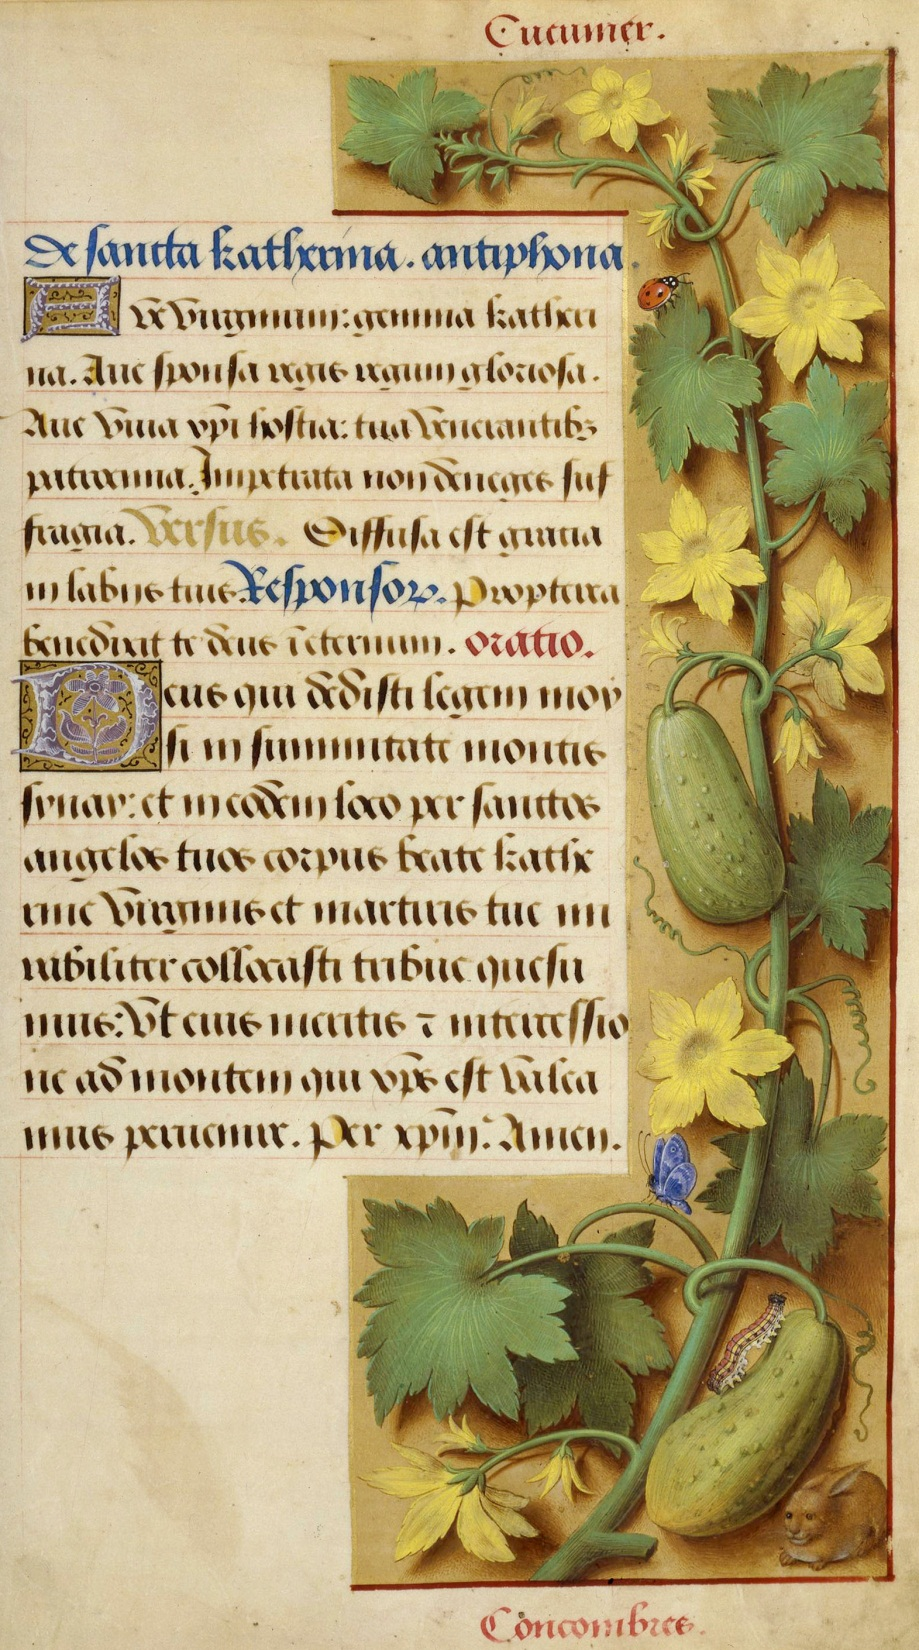 Cucumer.
De sancta katherina. antiphona.
Ave virginum: gemma katheri
na. Ave sponsa regis regum gloriosa.
Ave viva xpi hostia: tua venerantibz
patrocinia. Impetrata non deneges suf
fragia. Versus. Diffusa est gracia
in labijs tuis. Responsor. Propterea
benedixit te deus ī eternum. oratio.
Deus qui dedisti legem moy
si in summitate montis
synay: et in eodem loco per sanctos
angelos tuos corpus beate kathe
rine virginis et martiris tue mi
rabiliter collocasti tribue quesu
mus: Vt eius meritis ⁊ intercessio
ne ad montem qui xp̄s est valea
mus pervenire. Per xpm̄. Amen.
Concombres.